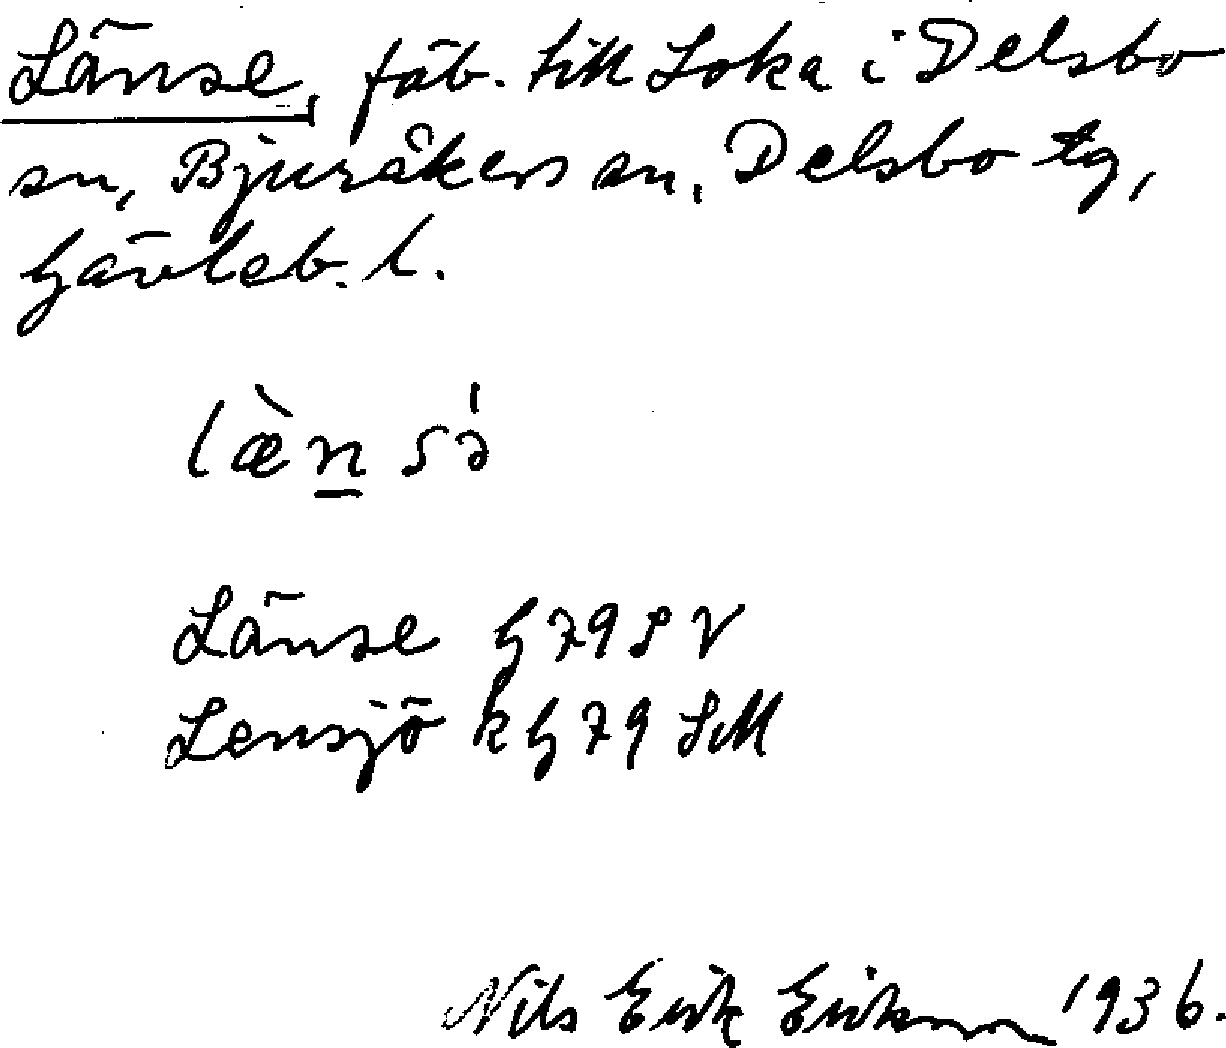 Länse, fäb. till Loka i Delsbo
sn, Bjuråkers sn, Delsbo tg,
Gävleb. l.
læ̀n sə̍
Länse G 79 SV
Lensjö k G 79 SM
Nils Erik Erikson 1936.